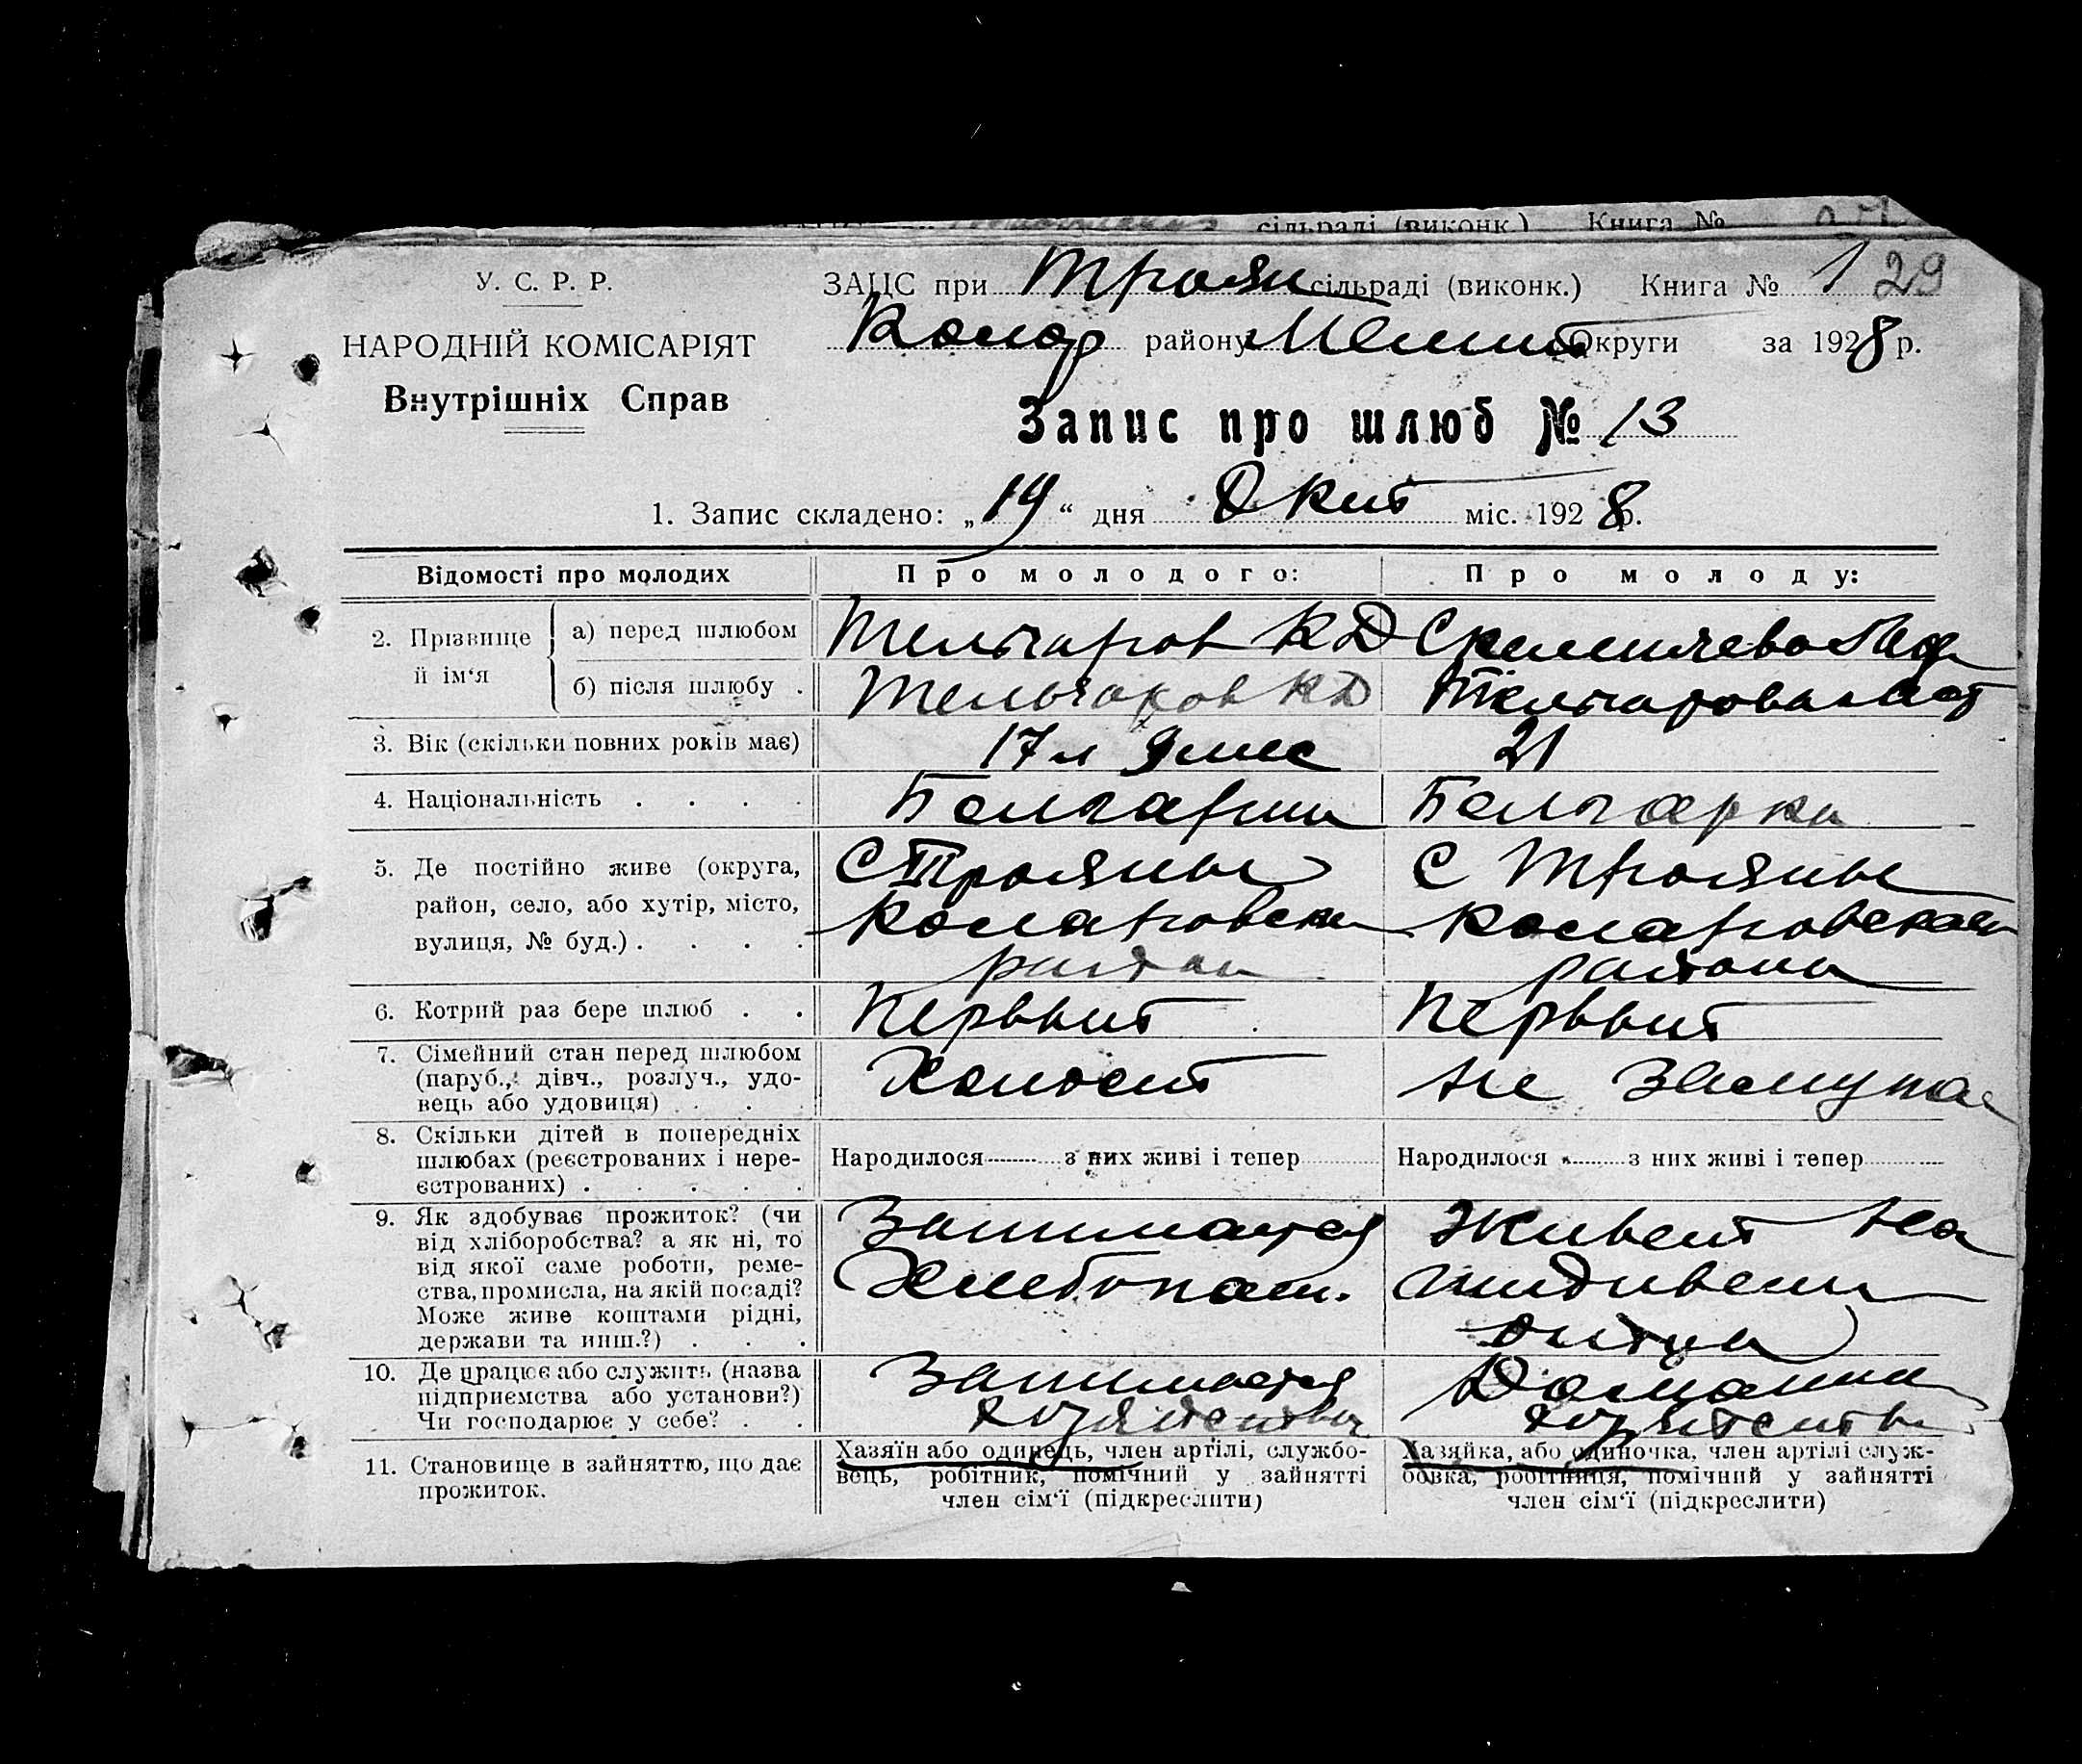 сільраді (виконк.) Книга №
У. С. Р. Р.
ЗАЦС при Троян сільраді (виконк.) Книга № 1 29
НАРОДНІЙ КОМІСАРІЯТ
району Округи за 1928 р.
Внутрішніх Справ
Запис про шлюб № 13
1. Запис складено: „19“ дня міс. 1928 р.
Відомості про молодих
Про молодого:
Про молоду:
2. Прізвище й ім‘я
а) перед шлюбом
К Д
б) після шлюбу .
К Д
3. Вік (скільки повних років має)
17 л 9 мес
21
4. Національність . . . .
Болгарин
Болгарка
5. Де постійно живе (округа,
район, село, або хутір, місто,
вулиця, № буд.) . . . .
С Трояны
района
С Трояны
района
6. Котрий раз бере шлюб . .
Первый
Первый
7. Сімейний стан перед шлюбом
(паруб., дівч., розлуч., удо-
вець або удовиця) . . .
Холост
не замужна
8. Скільки дітей в попередніх
шлюбах (реєстрованих і нере-
єстрованих) . . . . .
Народилося з них живі і тепер
Народилося з них живі і тепер
9. Як здобуває прожиток? (чи
від хліборобства? а як ні, то
від якої саме роботи, реме-
ства, промисла, на якій посаді?
Може живе коштами рідні,
держави та инш.?) . . .
Занимается
Хлебопаш.
Живет на
иждивении
отца
10. Де працює або служить (назва
підприємства або установи?)
Чи господарює у себе? . .
Занимается
Домашни
11. Становище в зайняттю, що дає
прожиток.
Хазяїн або одинець, член артілі, службо-
вець, робітник, помічний у зайнятті
член сім‘ї (підкреслити)
Хазяйка, або одиночка, член артілі служ-
бовка, робітниця, помічний у зайнятті
член сім‘ї (підкреслити)